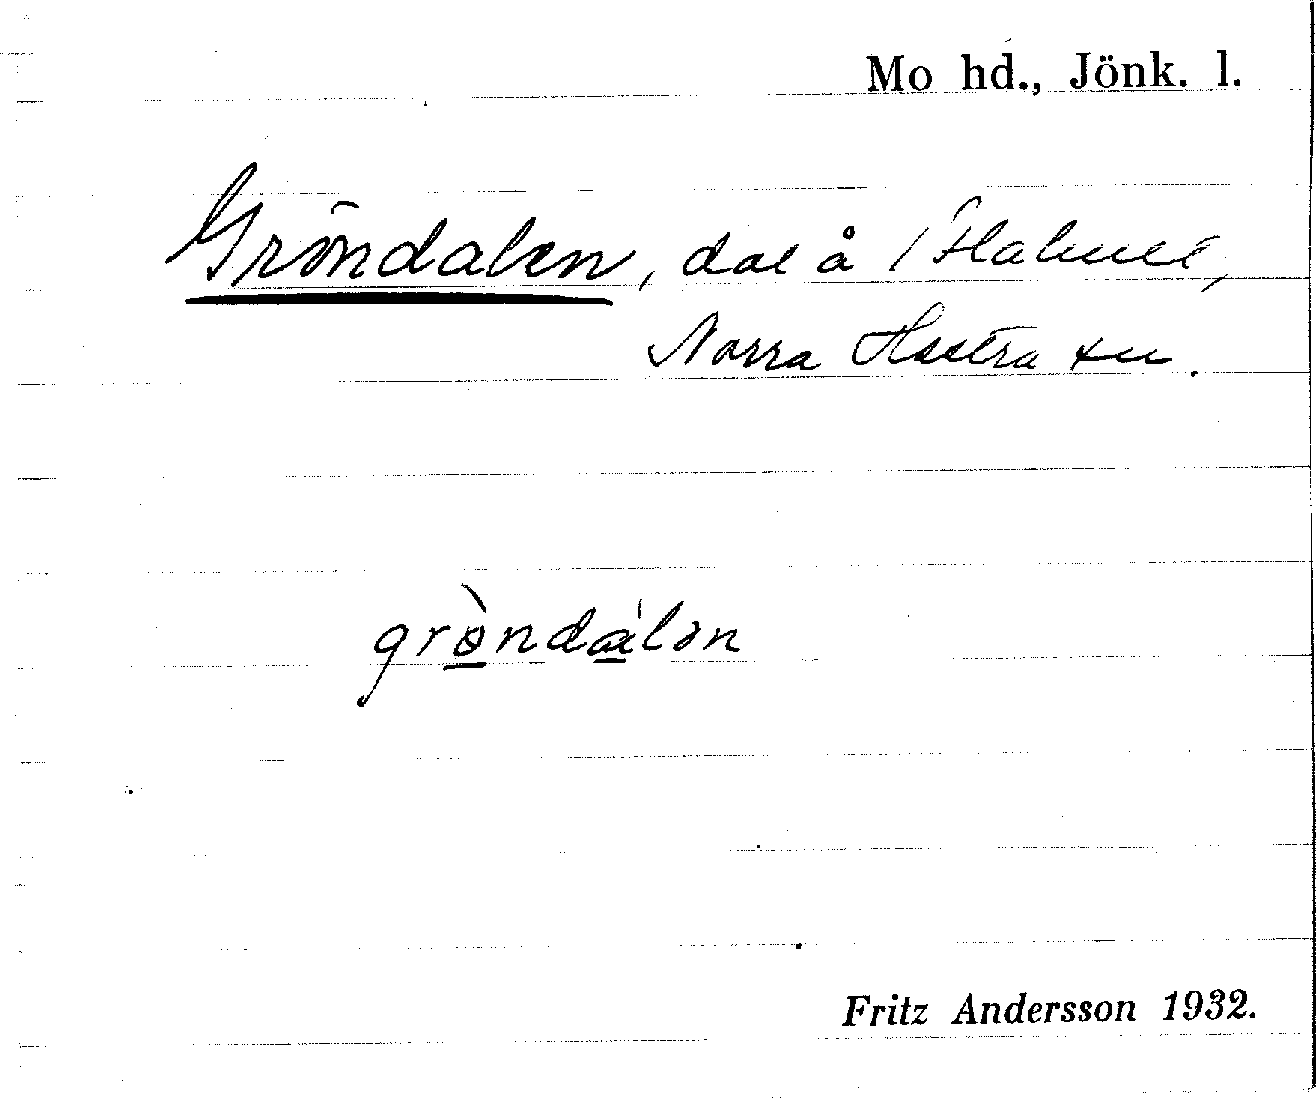 Mo hd., Jönk. l.
Gröndalen, dal å
Norra Hestra sn.
grøndalən
Fritz Andersson 1932.